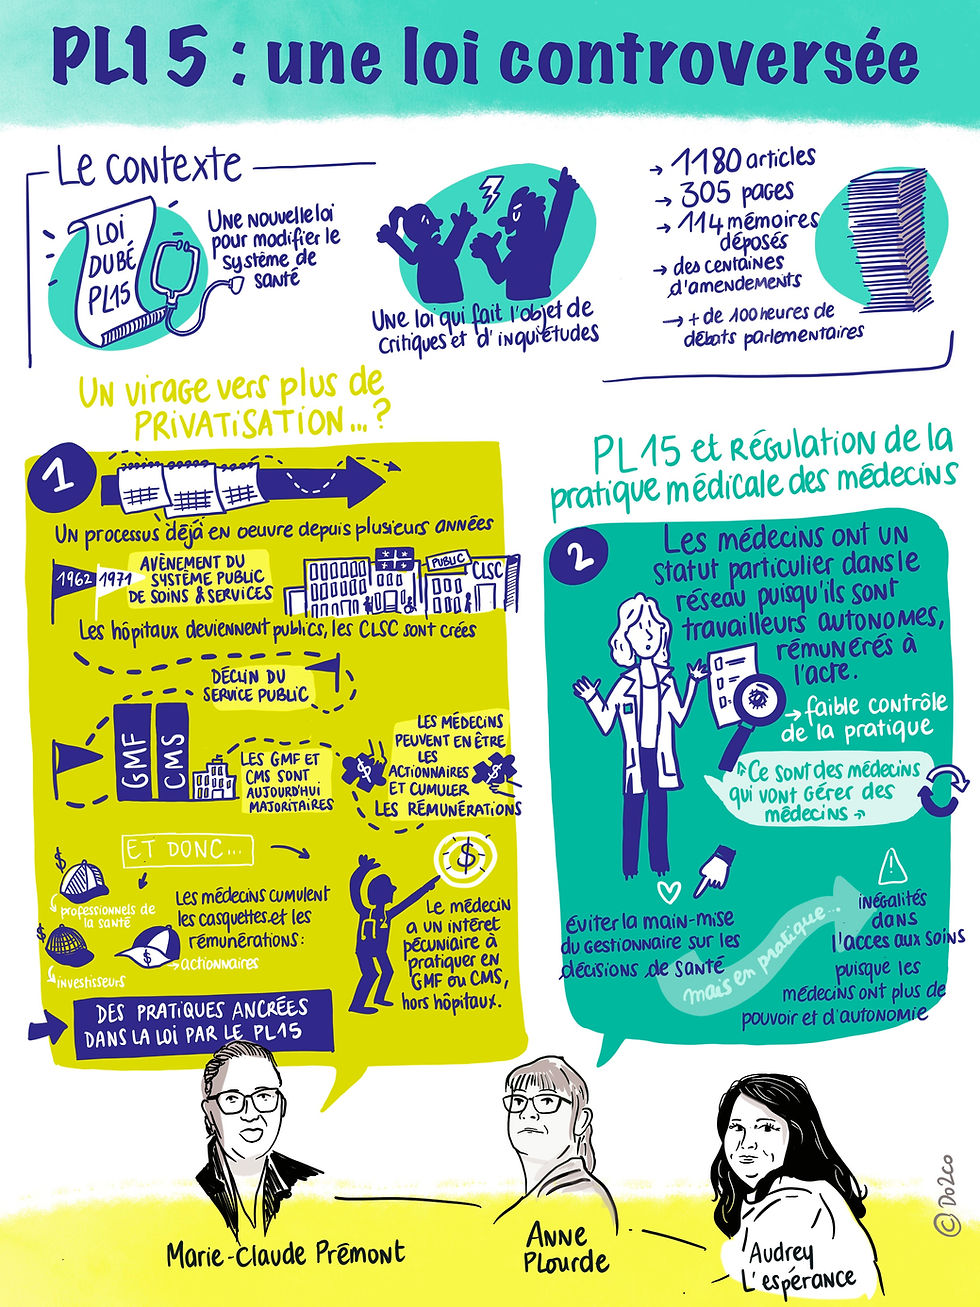 PL15 : une loi controversée
Le contexte
LOI
DUBÉ
PL15
Une nouvelle loi
pour modifier le
système de
santé
Une loi qui fait l'objet de
critiques et d'inquiétudes
→ 1180 articles
→ 305 pages
→ 114 mémoires
déposés
→ des centaines
d'amendements
→ + de 100 heures de
débats parlementaires
Un virage vers plus de
PRIVATISATION...?
1
Un processus déjà en oeuvre depuis plusieurs années
1962 1971
AVÈNEMENT DU
SYSTÈME PUBLIC
DE SOINS & SERVICES
PUBLIC
CLSC
Les hôpitaux deviennent publics, les CLSC sont créés
DÉCLIN DU
SERVICE PUBLIC
GMF
CMS
LES GMF ET
CMS SONT
AUJOURD'HUI
MAJORITAIRES
LES MÉDECINS
PEUVENT EN ÊTRE
LES
ACTIONNAIRES
ET CUMULER
LES RÉMUNÉRATIONS
$
$
ET DONC...
$
→ professionnels de
la santé
$
→ investisseurs
$
→ actionnaires
Les médecins cumulent
les casquettes et les
rémunérations :
$
Le médecin
a un intérêt
pécuniaire à
pratiquer en
GMF ou CMS,
hors hôpitaux.
DES PRATIQUES ANCRÉES
DANS LA LOI PAR LE PL15
PL 15 et RÉGULATION de la
pratique médicale des médecins
2
Les médecins ont un
statut particulier dans le
réseau puisqu'ils sont
travailleurs autonomes,
rémunérés à
l'acte.
→ faible contrôle
de la pratique
« Ce sont des médecins
qui vont gérer des
médecins »
éviter la main-mise
du gestionnaire sur les
décisions de santé
mais en pratique...
!
inégalités
dans
l'accès aux soins
puisque les
médecins ont plus de
pouvoir et d'autonomie
Marie-Claude Prémont
Anne
Plourde
Audrey
L'espérance
© Do2co